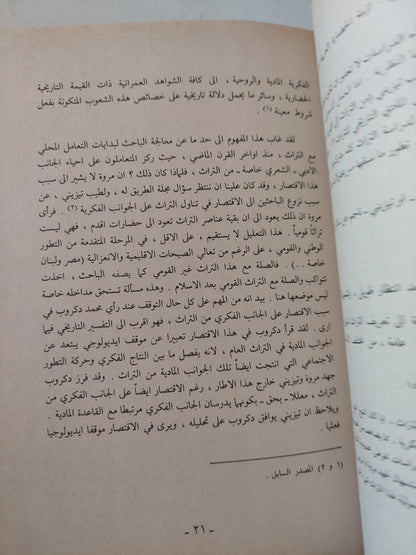 الفكرية المادية والروحية ، الى كافة الشواهد العمرانية ذات القيمة التاريخية
الحضارية ، وسائر ما يحمل دلالة تاريخية على خصائص هذه الشعوب المتكونة بفعل
شروط معينة (١) .
لقد غاب هذا المفهوم الى حد ما عن معالجة الباحث لبدايات التعامل المحلي
مع التراث ، منذ اواخر القرن الماضي ، حيث ركز المتعاملون على احياء الجانب
الادبي ـ الشعري خاصة ـ من التراث ، فلماذا كان ذلك ؟ ان مروة لا يشير الى سبب
هذا الاقتصار ، وقد كان علينا ان ننتظر سؤال مجلة الطريق له ، ولطيب تيزيني ، عن
سبب نزوع الباحثين الى الاقتصار في تناول التراث على الجوانب الفكرية (٢) . فرأى
مروة ان ذلك يعود الى ان بقية عناصر التراث تعود الى حضارات اقدم ، فهي ليست
تراثاً قومياً . هذا التعليل لا يستقيم ، على الاقل ، في المرحلة المتقدمة من التطور
الوطني والقومي ، على الرغم من تعالي الصيحات الاقليمية والانعزالية (مصر ولبنان
خاصة . . ) . فالصلة مع هذا التراث غير القومي كما يصفه الباحث ، اخذت
تتواكب والصلة مع التراث القومي بعد الاسلام . وهذه مسألة تستحق مداخلة خاصة
ليس موضعها هنا . بيد انه من المهم على كل حال التوقف عند رأي محمد دكروب في
سبب الاقتصار على الجانب الفكري من التراث ، فهو اقرب الى التفسير التاريخي فيما
ارى . لقد قرأ دكروب في هذا الاقتصار تعبيرا عن موقف ايديولوجي يبتعد عن
الجوانب المادية في التراث العام ، لانه يفصل ما بين النتاج الفكري وحركة التطور
الاجتماعي التي انتجت ايضاً تلك الجوانب المادية من التراث . وقد فرز دكروب
جهد مروة وتيزيني خارج هذا الاطار ، رغم الاقتصار ايضاً على الجانب الفكري من
التراث ، معللا ـ بحق ـ بكونهما يدرسان الجانب الفكري مرتبطا مع القاعدة المادية .
ويلاحظ ان تيزيني يوافق دكروب على تحليله ، ويرى في الاقتصار موقفا ايديولوجيا
فعليا .
(١ و ٢) المصدر السابق .
ـ ٢١ ـ